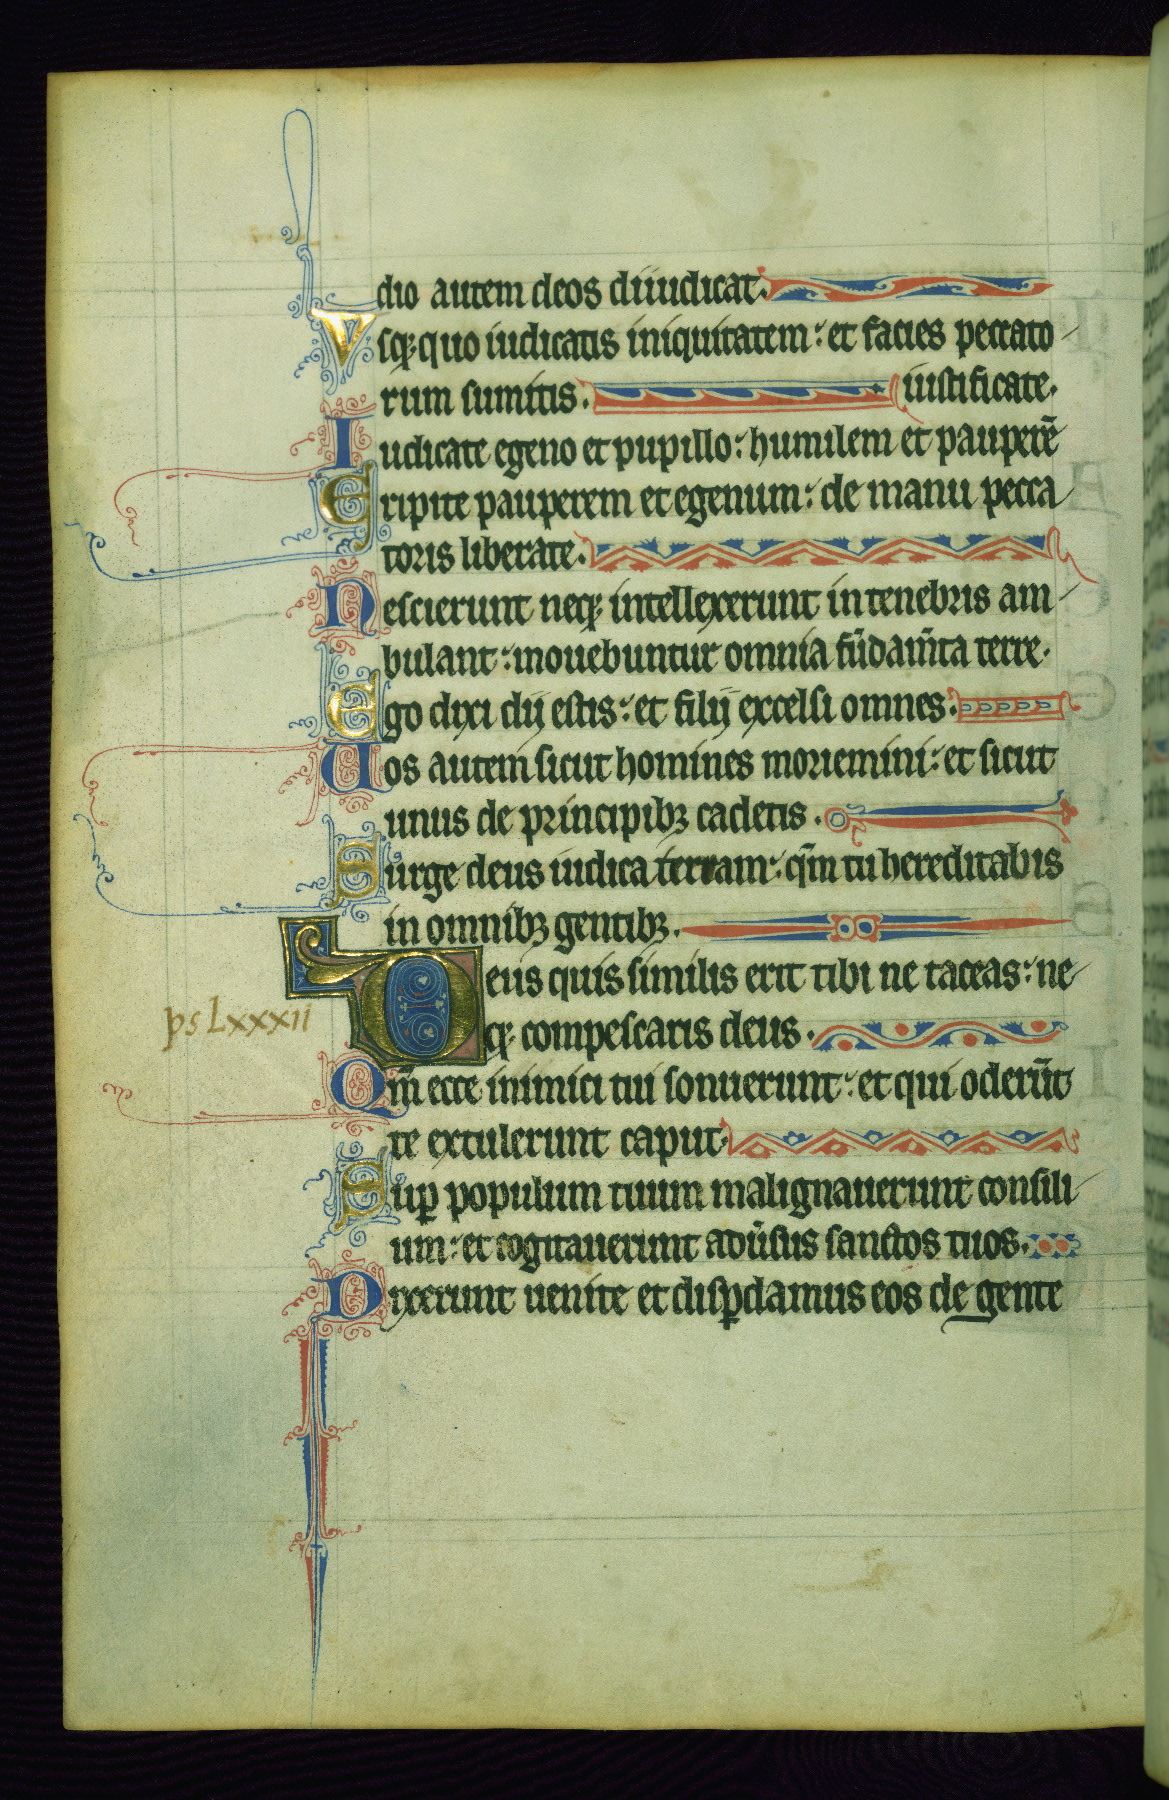 dio autem deos diiudicat.
Vsq; quo iudicatis iniquitatem: et facies peccato
rum sumitis. iustificate.
Iudicate egeno et pupillo: humilem et pauperē
Eripite pauperem et egenum: de manu pecca
toris liberate.
Nescierunt neq; intellexerunt in tenebris am
bulant: mouebuntur omnia fūdam̄ta terre.
Ego dixi dij estis: et filij excelsi omnes.
Uos autem sicut homines moriemini: et sicut
unus de principibꝫ cadetis.
Surge deus iudica terram: qm̄ tu hereditabis
in omnibꝫ gentibꝫ.
Deus quis similis erit tibi ne taceas: ne
ps Lxxxii
q; compescaris deus.
Qm̄ ecce inimici tui sonuerunt: et qui oderūt
te extulerunt caput.
Suꝑ populum tuum malignauerunt consili
um: et cogitauerunt adūsus sanctos tuos.
Dixerunt uenite et disꝑdamus eos de gente